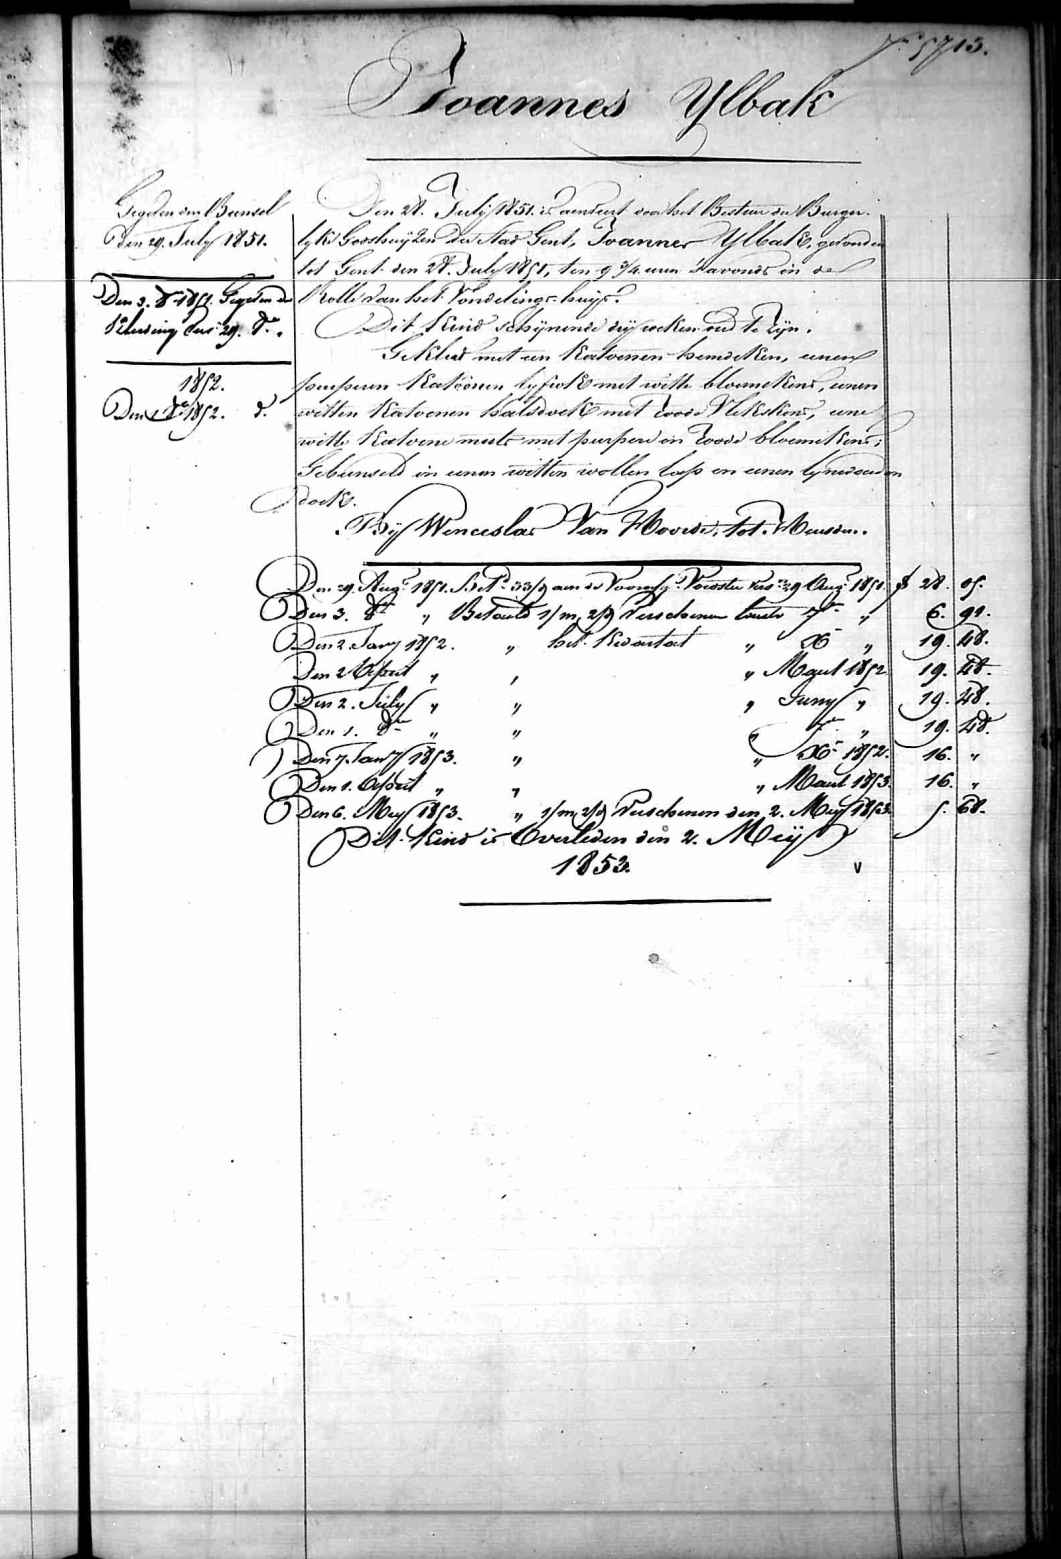 5713.
Joannes Ylbak
Gegeven den Bunsel
Den 29. July 1851.
Den 3. 8 1851. Gegeven de
Kleeding der 29. d.
1852.
Den 1852. d.
Den 28. July 1851. is aenveert door het Bestuer der Burger-
lyke Godshuyzen der Stad Gent, Joannes Ylbak, gevonden
tot Gent den 28. July 1851, ten 9 3/4 uren 's avonds in de
Rolle van het Vondelings-huys.
Dit Kind schynende dry weken oud te zyn.
Gekleed met een Katoenen hemdeken, eenen
purperen Katoenen lyfrok met witte bloemekens, eenen
witten Katoenen halsdoek met roode Vlekskens, eene
witte Katoene muts met purpere en roode bloemekens;
Gebunseld in eenen witten wollen lap en eenen lynwaeden
doek.
By Wenceslas Van Hoorde, tot Heusden.
Den 29. Aug. 1851. Bet. 33/ aen de Voorsch. Voedster 29 Aug. 1851. f 28. 05.
Den 3. 8 " Betaeld 1/m 2/d Verschenen 7 " 6. 99.
Den 2. Jany 1852. " het Kwartael " X " 19. 48.
Den 2 April " " " Maert 1852 19. 48.
Den 2. July " " " Juny " 19. 48.
Den 1. 8 " " " 7 " 19. 48.
Den 7. Jany 1853. " " X 1852. 16. "
Den 1. April " " " Maert 1853. 16. "
Den 6. Mey 1853. " 1/m 2/d Verschenen den 2. Mey 1853. 5. 68.
Dit Kind is Overleden den 2. Mey
1853. v